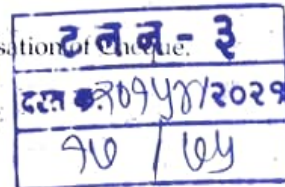 sation of Cheque.
ट न न - ३
दस्त क्र. २०१५४/२०२१
१७ / ७५